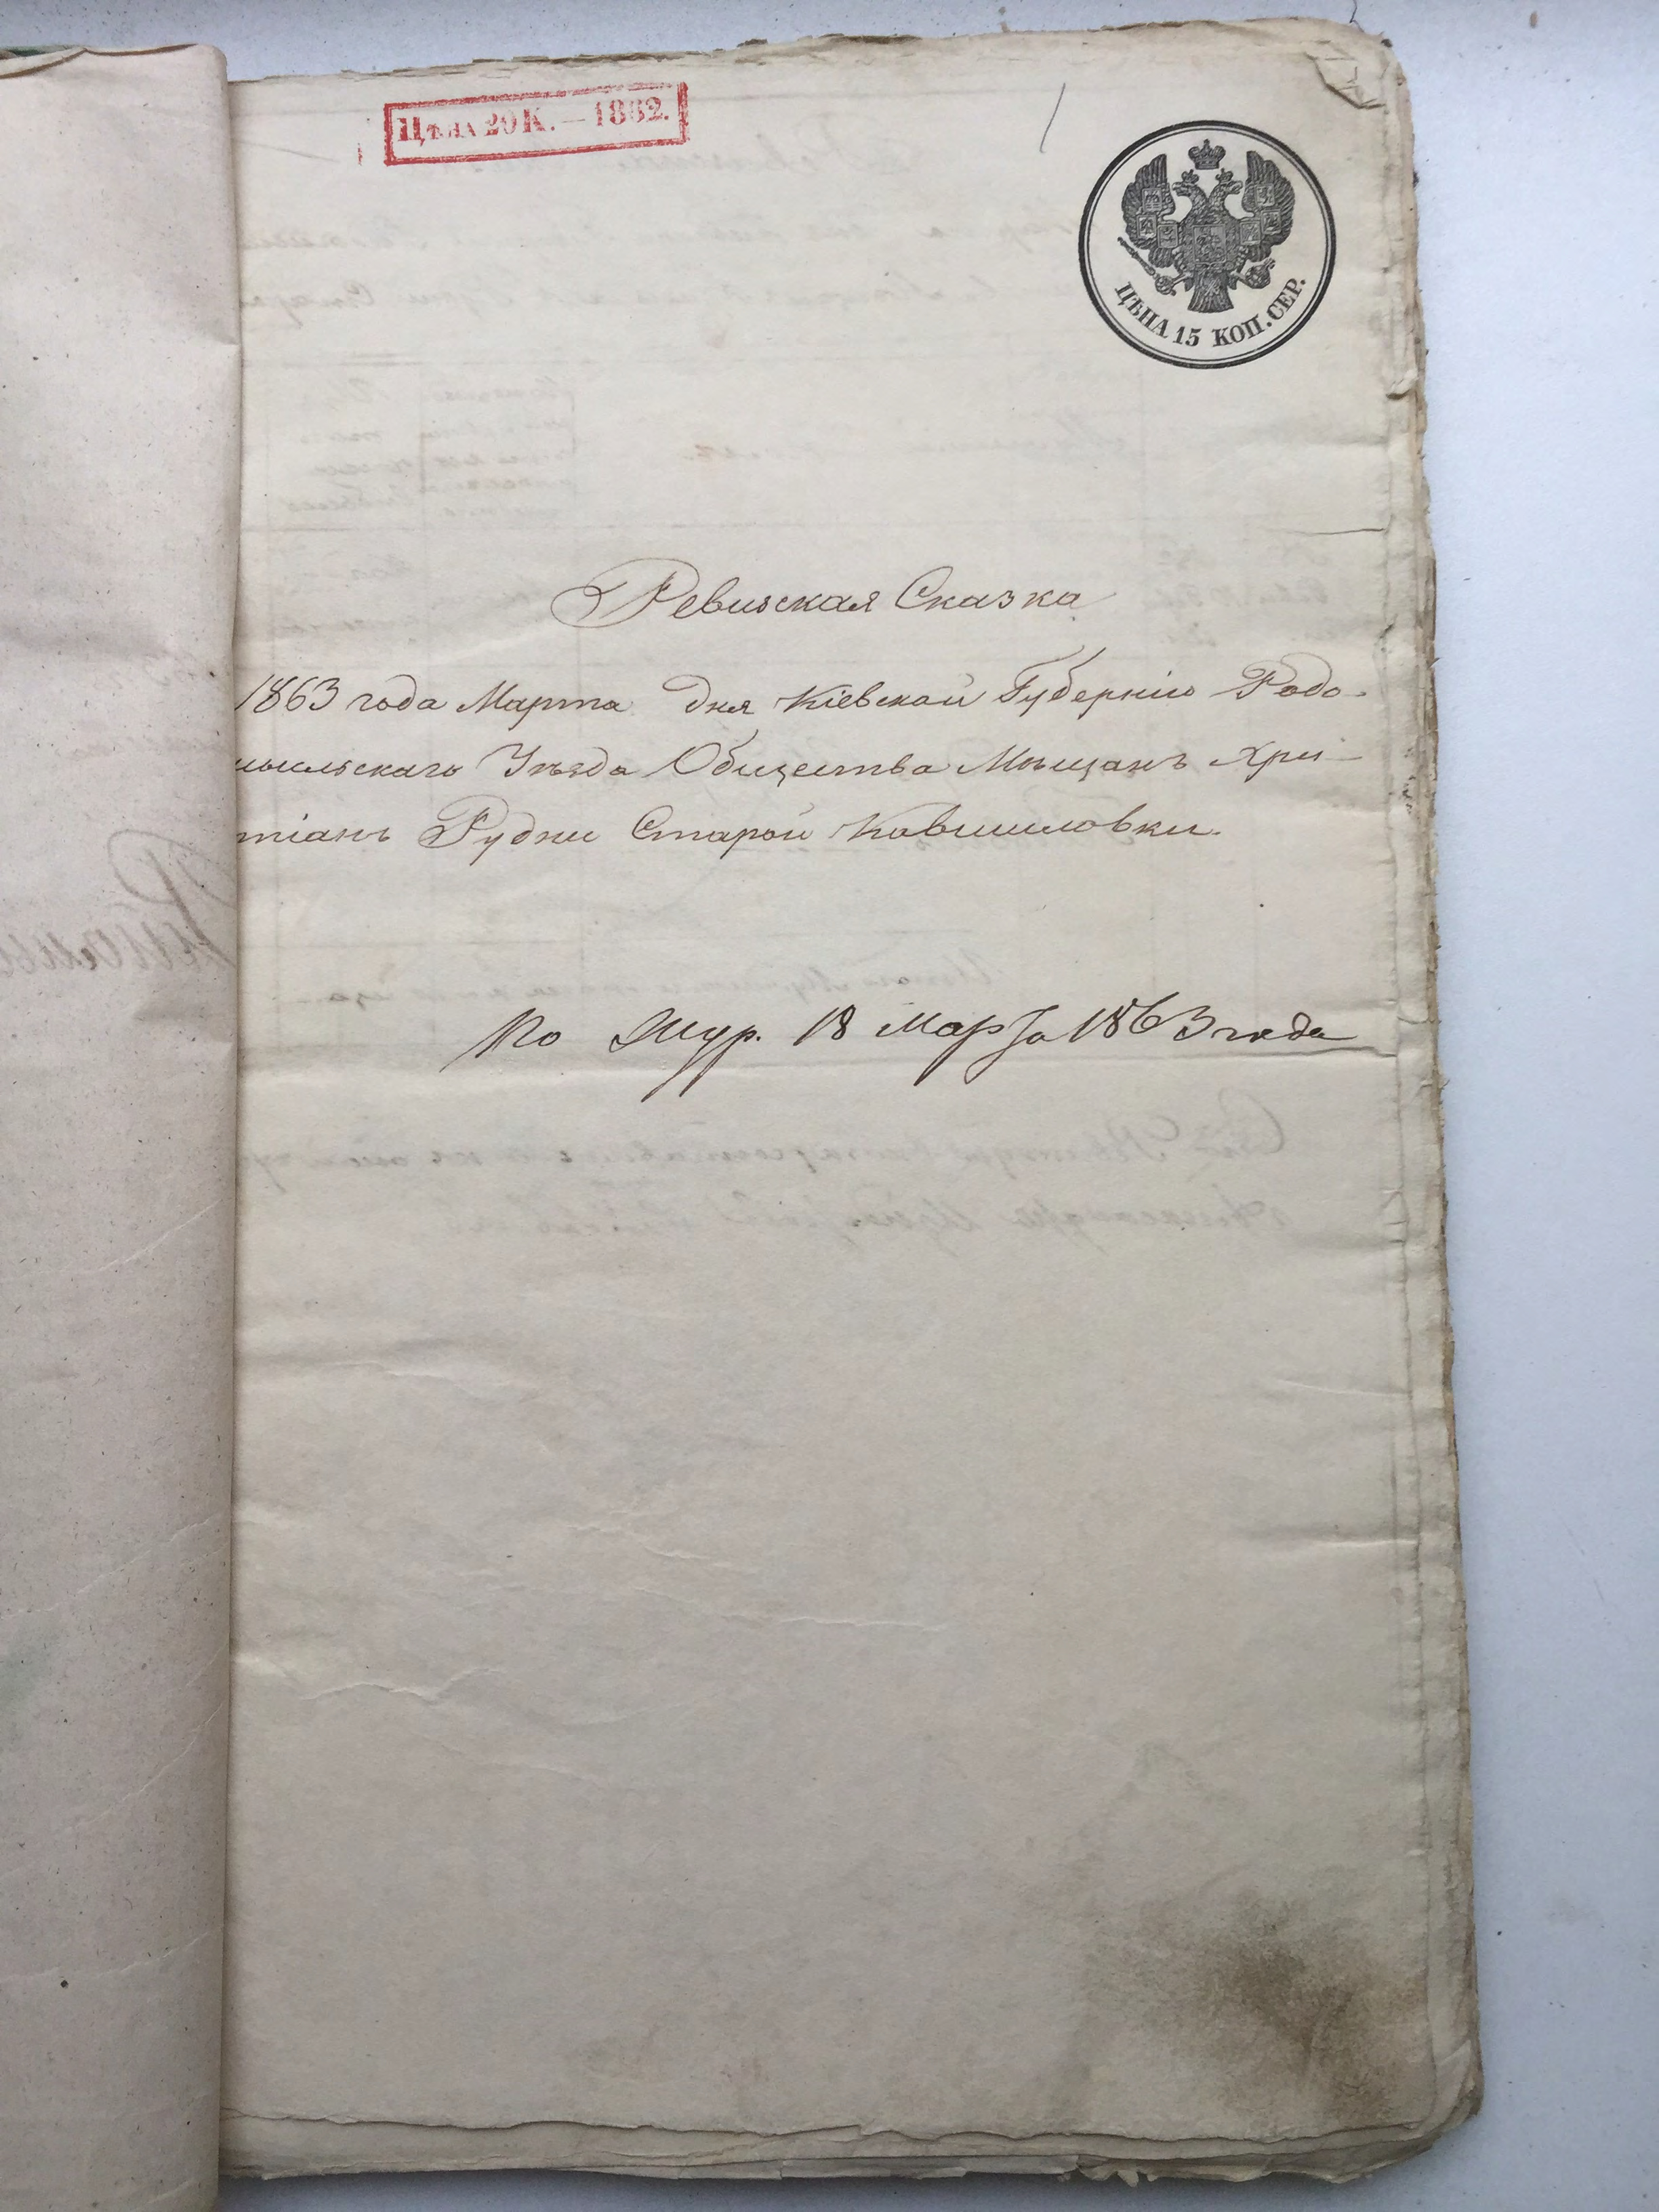 Цѣна 20 К. — 1862.
ЦѢНА 15 КОП. СЕР.
Ревизская Сказка
1863 года Марта дня Кіевской Губерніи Радо-
мысльскаго Уѣзда Общества Мѣщанъ Хри-
тіанъ Рудни Старой
По Жур. 18 Марта 1863 года